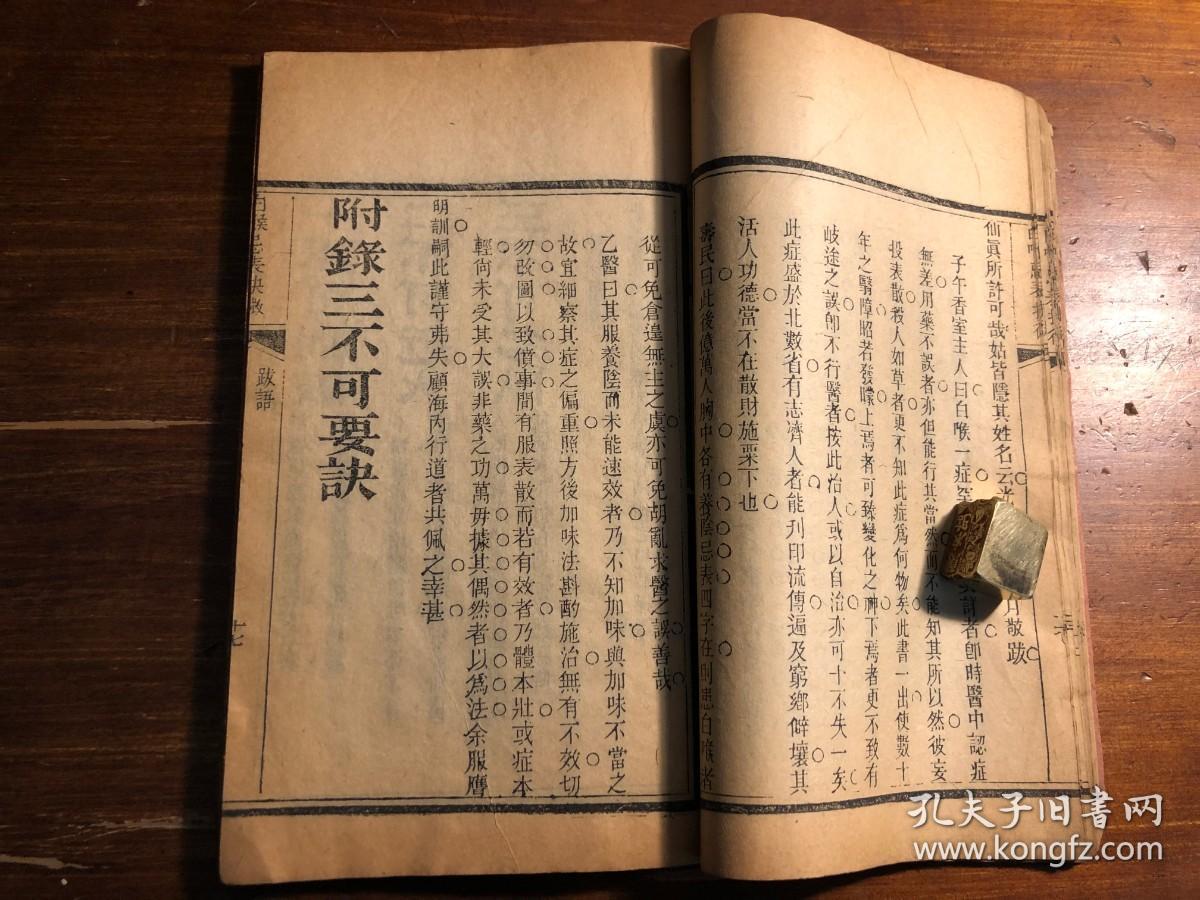 仙眞所許可哉姑皆隱其姓名云光
月敬跋
子午香室主人曰白喉一症至
者卽時醫中認症
無差用藥不誤者亦但能行其當然而不能知其所以然彼妄
投表散殺人如草者更不知此症爲何物矣此書一出使數十
年之翳障昭若發矇上焉者可臻變化之神下焉者更不致有
岐途之誤卽不行醫者按此治人或以自治亦可十不失一矣
此症盛於北數省有志濟人者能刋印流傳遍及窮鄉僻壤其
活人功德當不在散財施粟下也
壽民曰此後億萬人胸中各有養陰忌表四字在則患白喉者
從可免倉遑無主之虞亦可免胡亂求醫之誤善哉
乙醫曰其服養陰而未能速效者乃不知加味與加味不當之
故宜細察其症之偏重照方後加味法斟酌施治無有不效切
勿改圖以致僨事間有服表散而若有效者乃體本壯或症本
輕尙未受其大誤非藥之功萬毋據其偶然者以爲法余服膺
明訓嗣此謹守弗失顧海內行道者共佩之幸甚
附錄三不可要訣
白喉忌表抉微
跋語
十七
孔夫子旧书网
www.kongfz.com